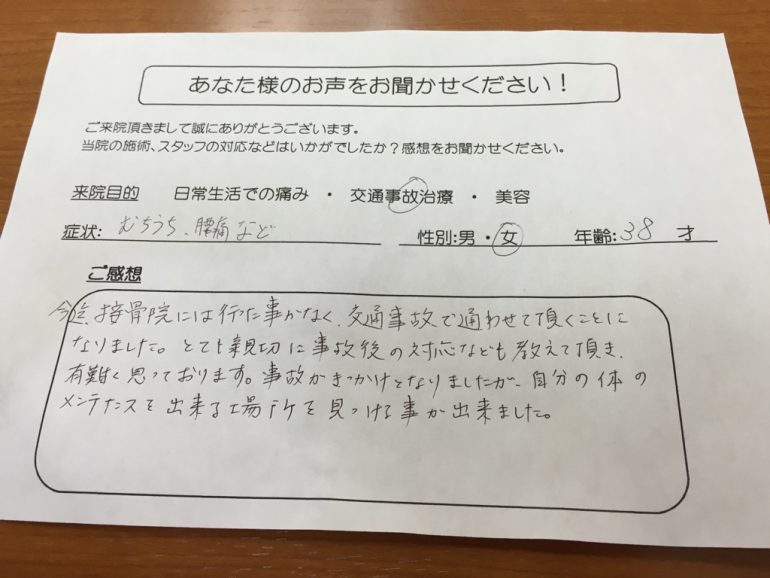 あなた様のお声をお聞かせください！
ご来院頂きまして誠にありがとうございます。
当院の施術、スタッフの対応などはいかがでしたか？感想をお聞かせください。
来院目的 日常生活での痛み ・ 交通事故治療 ・ 美容
症状: むちうち、腰痛など 性別:男・女 年齢:38 才
ご感想
今迄、接骨院には行た事がなく、交通事故で通わせて頂くことに
なりました。とても親切に事故後の対応なども教えて頂き、
有難く思っております。事故がきっかけとなりましたが、自分の体の
メンテナンスを出来る場所を見つける事が出来ました。